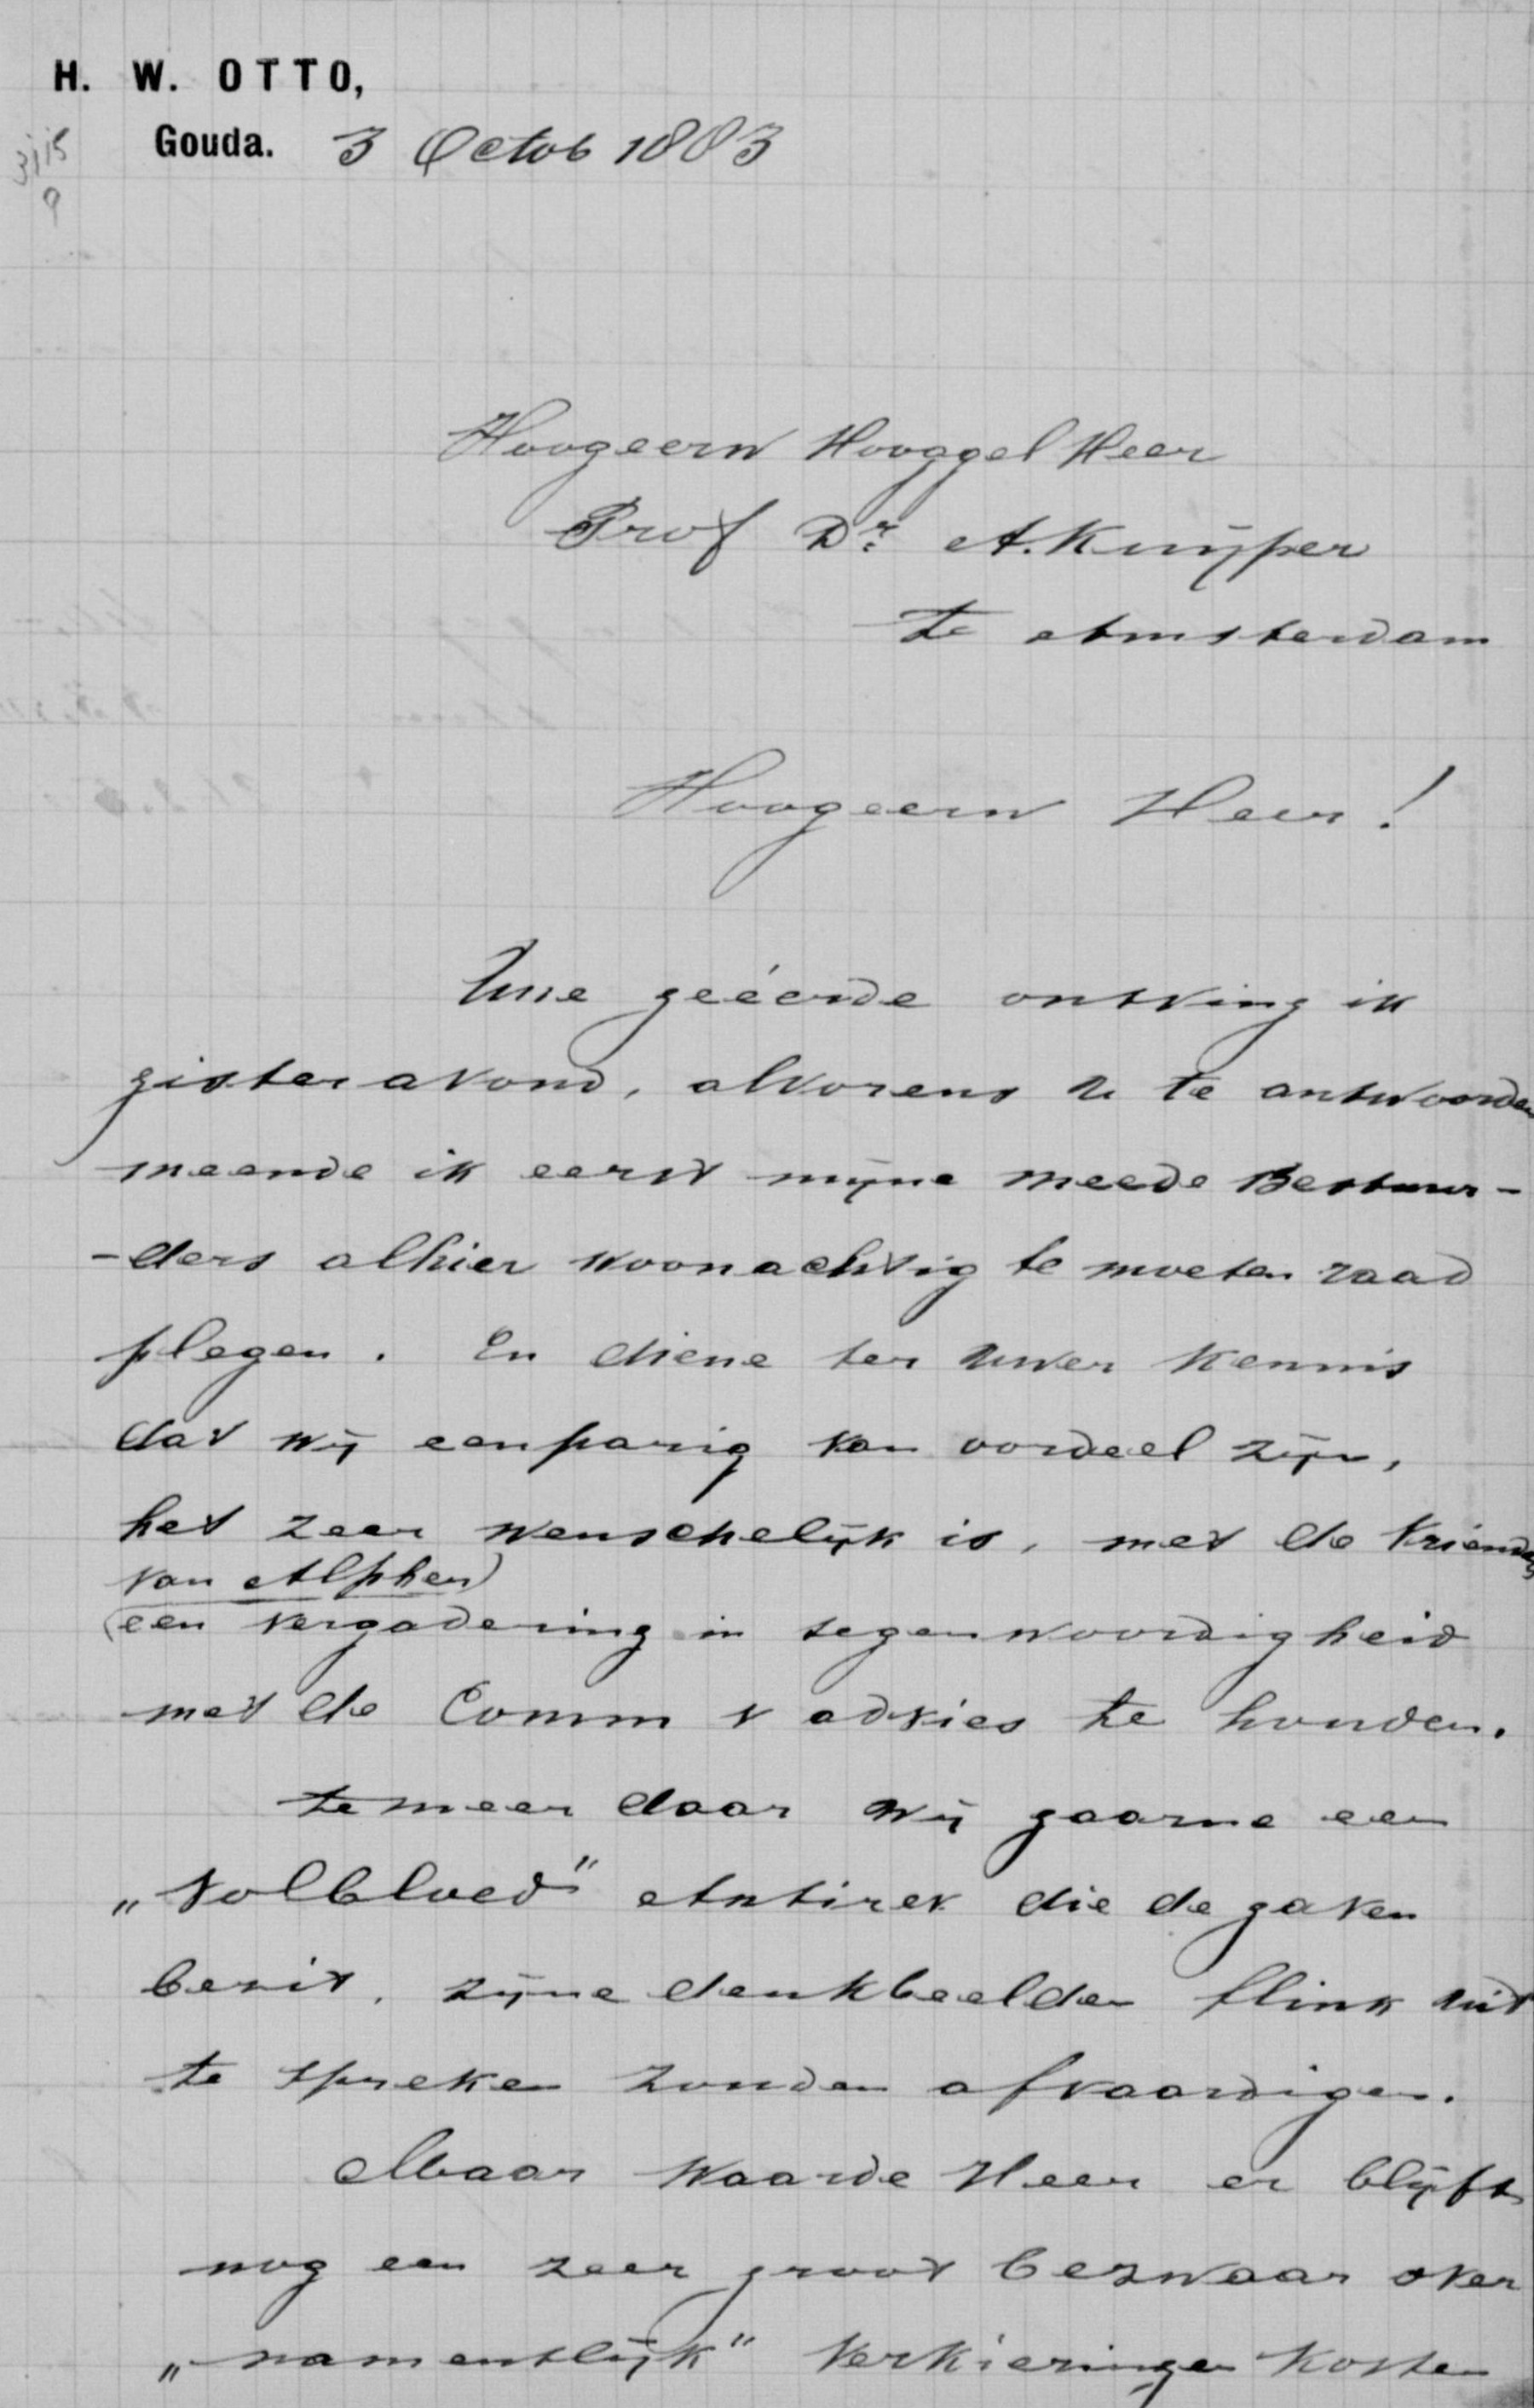 H. W. OTTO,
Gouda. 3 Octob 1883
Hoogeern Hooggel Heer
Prof Dr. A. Kuijper
te Amsterdam
Hoogeern Heer!
Uwe geéerde ontving ik
gister avond, alvorens u te antwoorden
meende ik eerst mijne meede Bestuur-
-ders alhier woonachtig te moeten raad
plegen. En diene ter uwer kennis
dat wij eenparig van oordeel zijn,
het zeer wenschelijk is, met de vrienden
van Alphen
een vergadering in tegenwoordigheid
met de Comm v advies te houden.
te meer daar wij gaarne een
„Volbloed" Antirev die de gaven
bezit, zijne denkbeelden flink uit
te spreken zouden afvaardigen.
Maar Waarde Heer er blijft
nog een zeer groot bezwaar over
„namentlijk" Verkieringen kosten